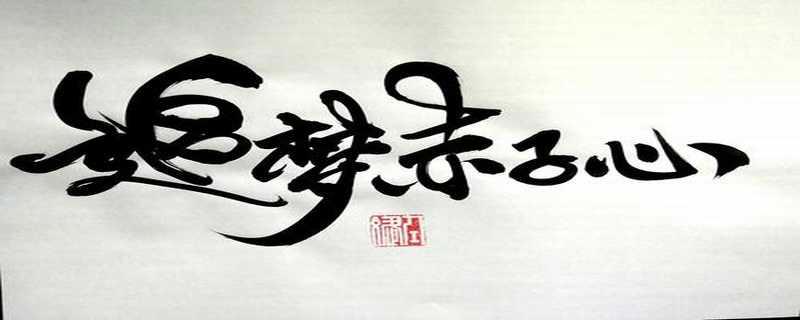 追梦赤子心